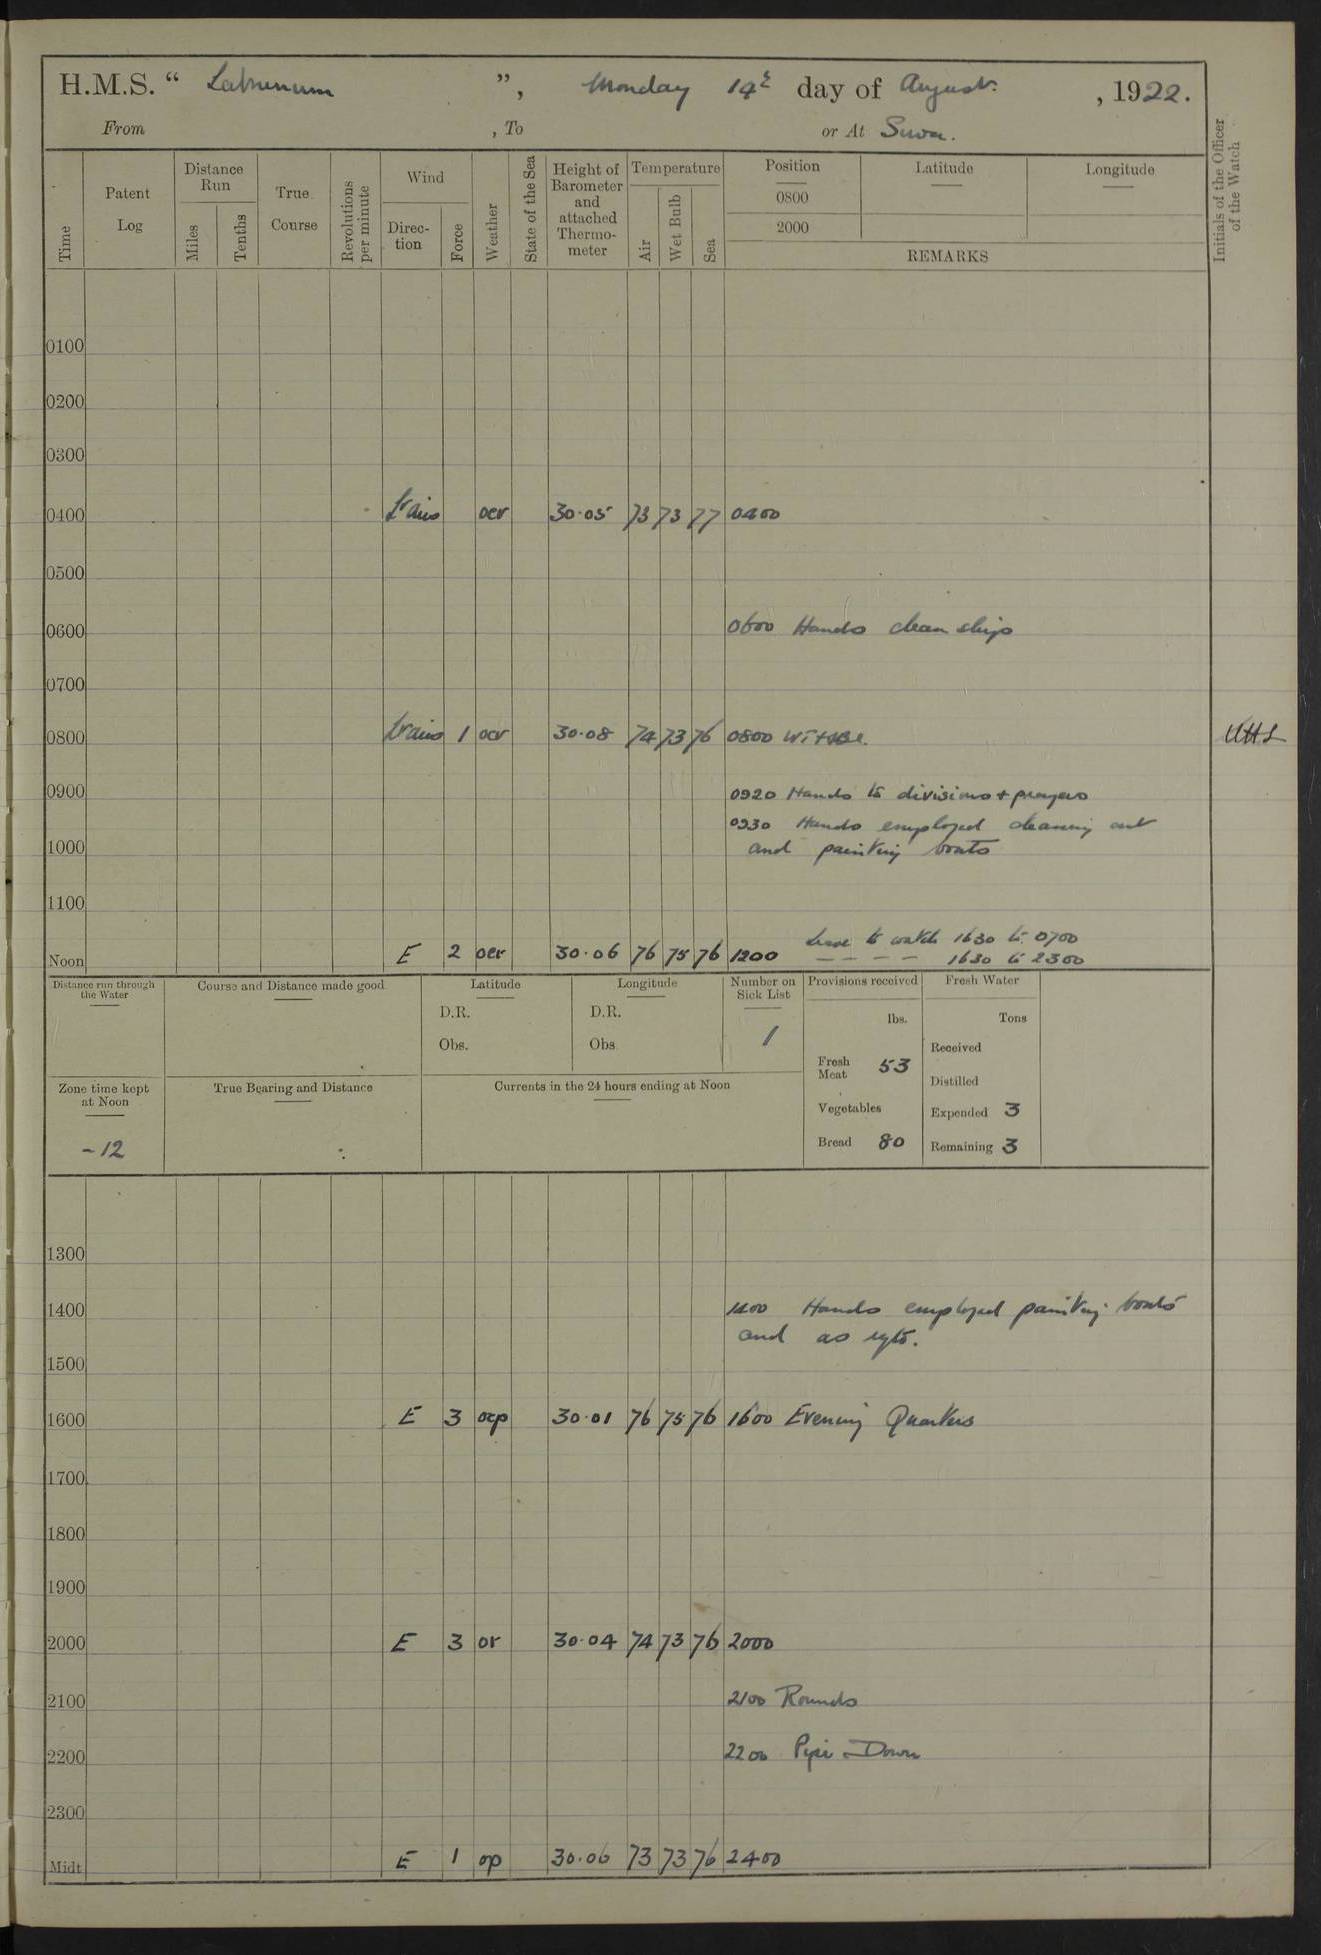 H.M.S. “ Laburnum ”, Monday 14th day of August, 1922.
From , To or At Suva.
Time
Patent Log
Distance Run
Miles
Tenths
True Course
Revolutions per minute
Wind
Direc-tion
Force
Weather
State of the Sea
Height of Barometer and attached Thermo-meter
Temperature
Air
Wet Bulb
Sea
Position
0800
2000
Latitude
Longitude
REMARKS
Initials of the Officer of the Watch
0100
0200
0300
0400 ocr 30.05 73 73 77 0400
0500
0600 0600 Hands clean ship
0700
0800 1 ocr 30.08 74 73 76 0800
0900 0920 Hands to divisions + prayers
0930 Hands employed cleaning out
1000 and painting boats
1100
Leave to watch 1630 to 0700
Noon E 2 ocr 30.06 76 75 76 1200 – – – – 1630 to 2300
Distance run through the Water
Course and Distance made good
Latitude
D.R.
Obs.
Longitude
D.R.
Obs
Number on Sick List
1
Provisions received
lbs.
Fresh Meat 53
Vegetables
Bread 80
Fresh Water
Tons
Received
Distilled
Expended 3
Remaining 3
Zone time kept at Noon
-12
True Bearing and Distance
Currents in the 24 hours ending at Noon
1300
1400 1400 Hands employed painting boats
and as reqts.
1500
1600 E 3 ocp 30.01 76 75 76 1600 Evening Quarters
1700
1800
1900
2000 E 3 or 30.04 74 73 76 2000
2100 2100 Rounds
2200 2200 Pipe Down
2300
Midt. E 1 op 30.06 73 73 76 2400